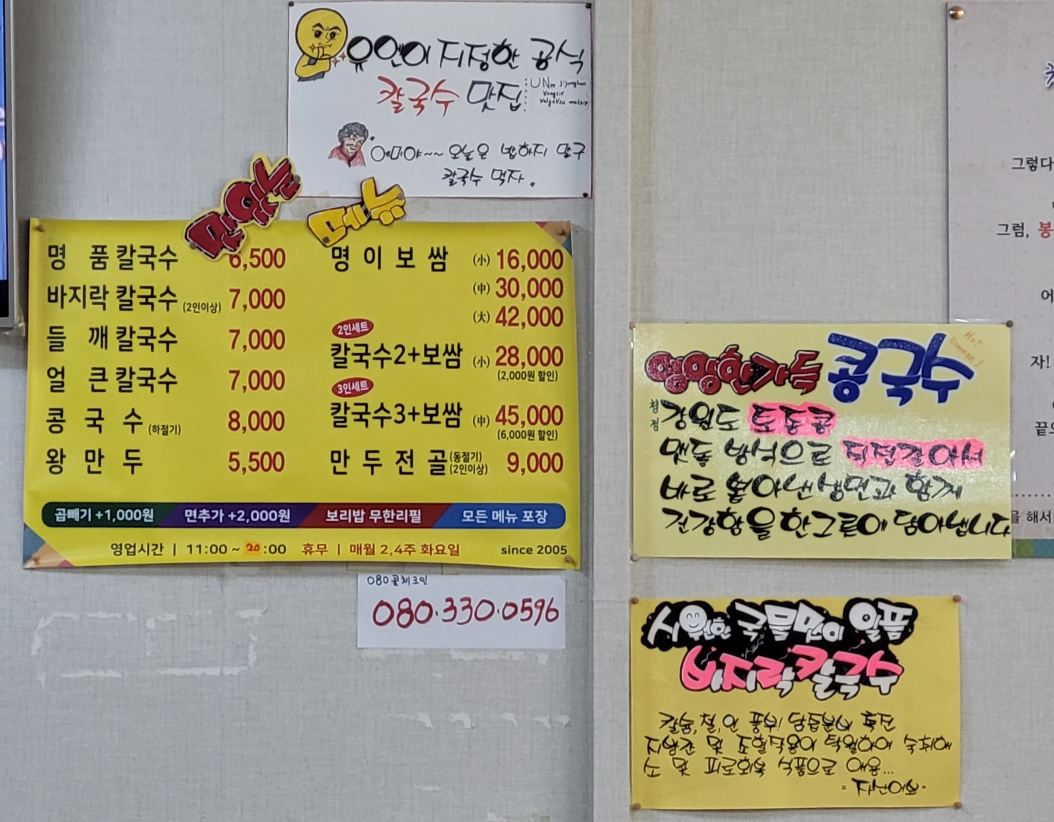 유엔이 지정한 공식
칼국수 맛집
에미야~~ 오늘은 밥하지 말구
칼국수 먹자.
메뉴
명품칼국수 6,500
바지락칼국수 (2인이상) 7,000
들깨칼국수 7,000
얼큰칼국수 7,000
콩국수 (하절기) 8,000
왕만두 5,500
명이보쌈 (小) 16,000
(中) 30,000
(大) 42,000
2인세트
칼국수2+보쌈 (小) 28,000
(2,000원 할인)
3인세트
칼국수3+보쌈 (中) 45,000
(6,000원 할인)
만두전골 (동절기) (2인이상) 9,000
곱빼기 +1,000원 면추가 +2,000원 보리밥 무한리필 모든 메뉴 포장
영업시간 | 11:00 ~ 20:00 휴무 | 매월 2,4주 화요일 since 2005
080콜체크인
080.330.0596
영양한가득 콩국수
청정 강원도 토종콩
맷돌 방식으로 직접갈아서
바로 뽑아낸 생면과 함께
건강함을 한그릇에 담아냅니다
시원한 국물맛이 일품
바지락칼국수
칼슘, 철, 인 풍부! 담즙분비 촉진
지방간 및 조혈작용이 탁월하여 숙취해
소 및 피로회복 식품으로 애용...
그렇다
그럼, 봉
어
자!
끝으
를 해서